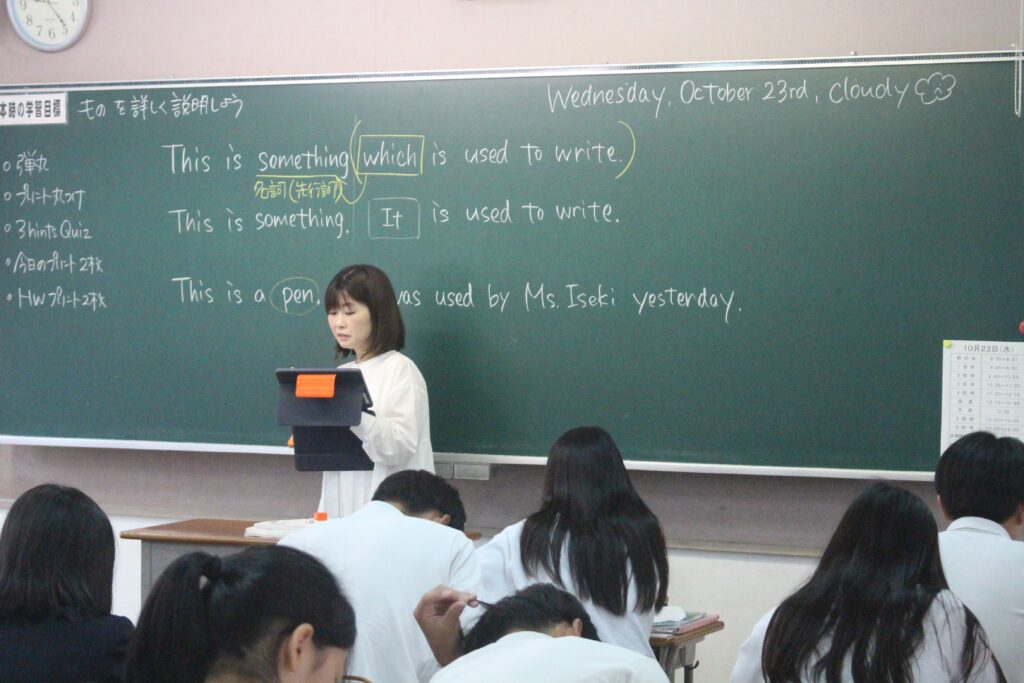 本時の学習目標 ものを詳しく説明しよう
Wednesday, October 23rd, cloudy
○ 弾丸
○ プリント丸つけ
○ 3 hints Quiz
○ 今日のプリント2枚
○ HWプリント2枚
This is something (which is used to write.)
名詞(先行詞)
This is something. It is used to write.
This is a pen. was used by Ms. Iseki yesterday.
10月23日(水)